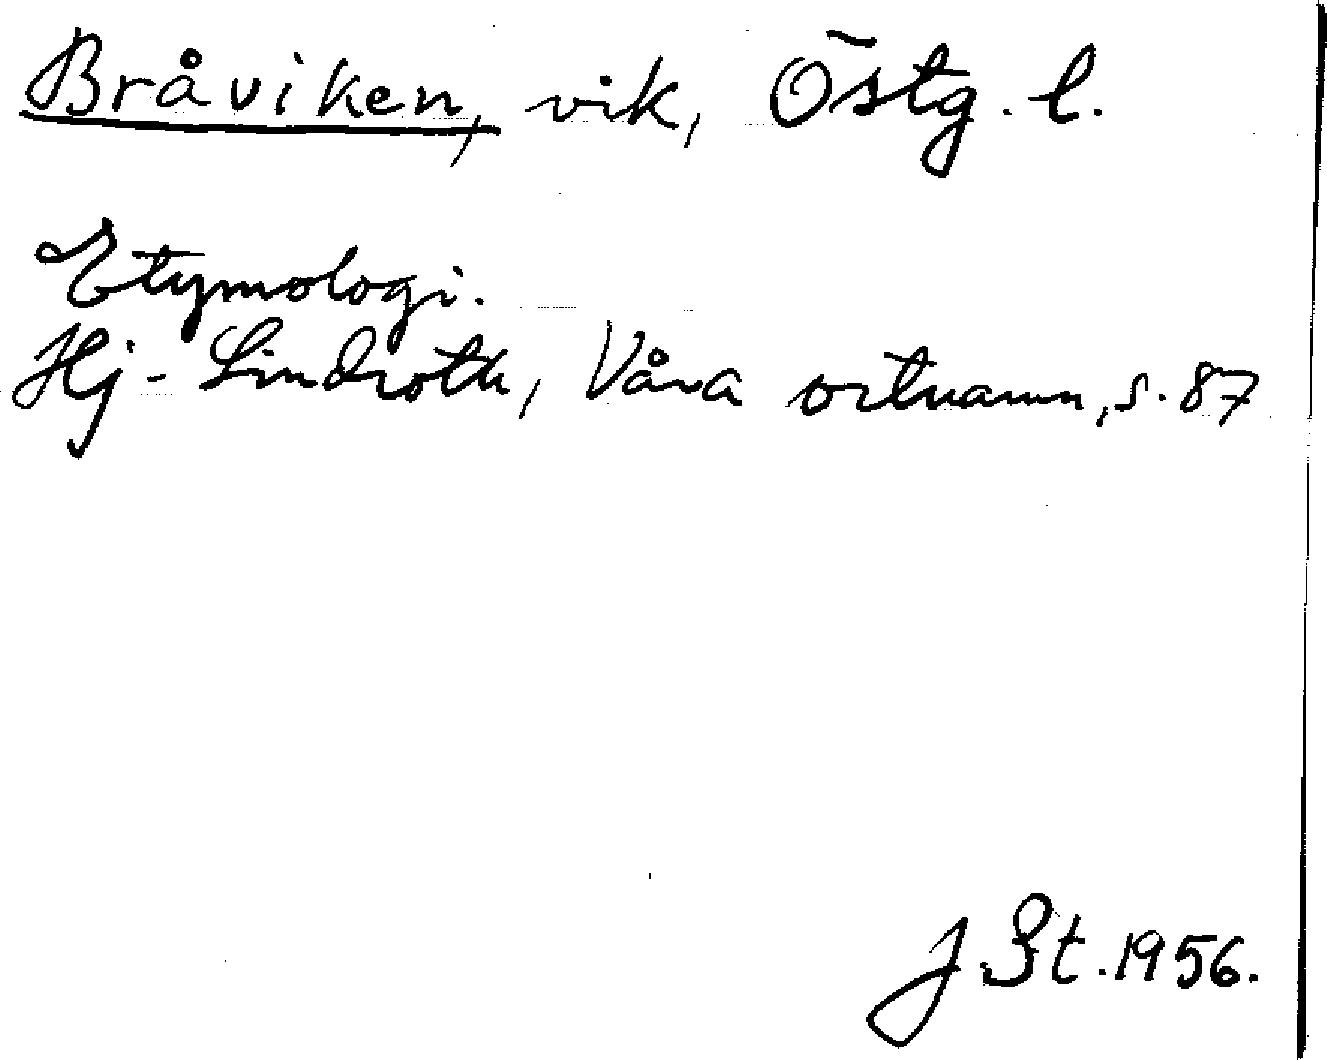 Bråviken, vik, Östg. l.
Etymologi.
Hj. Lindroth, Våra ortnamn, s. 87
J. St. 1956.